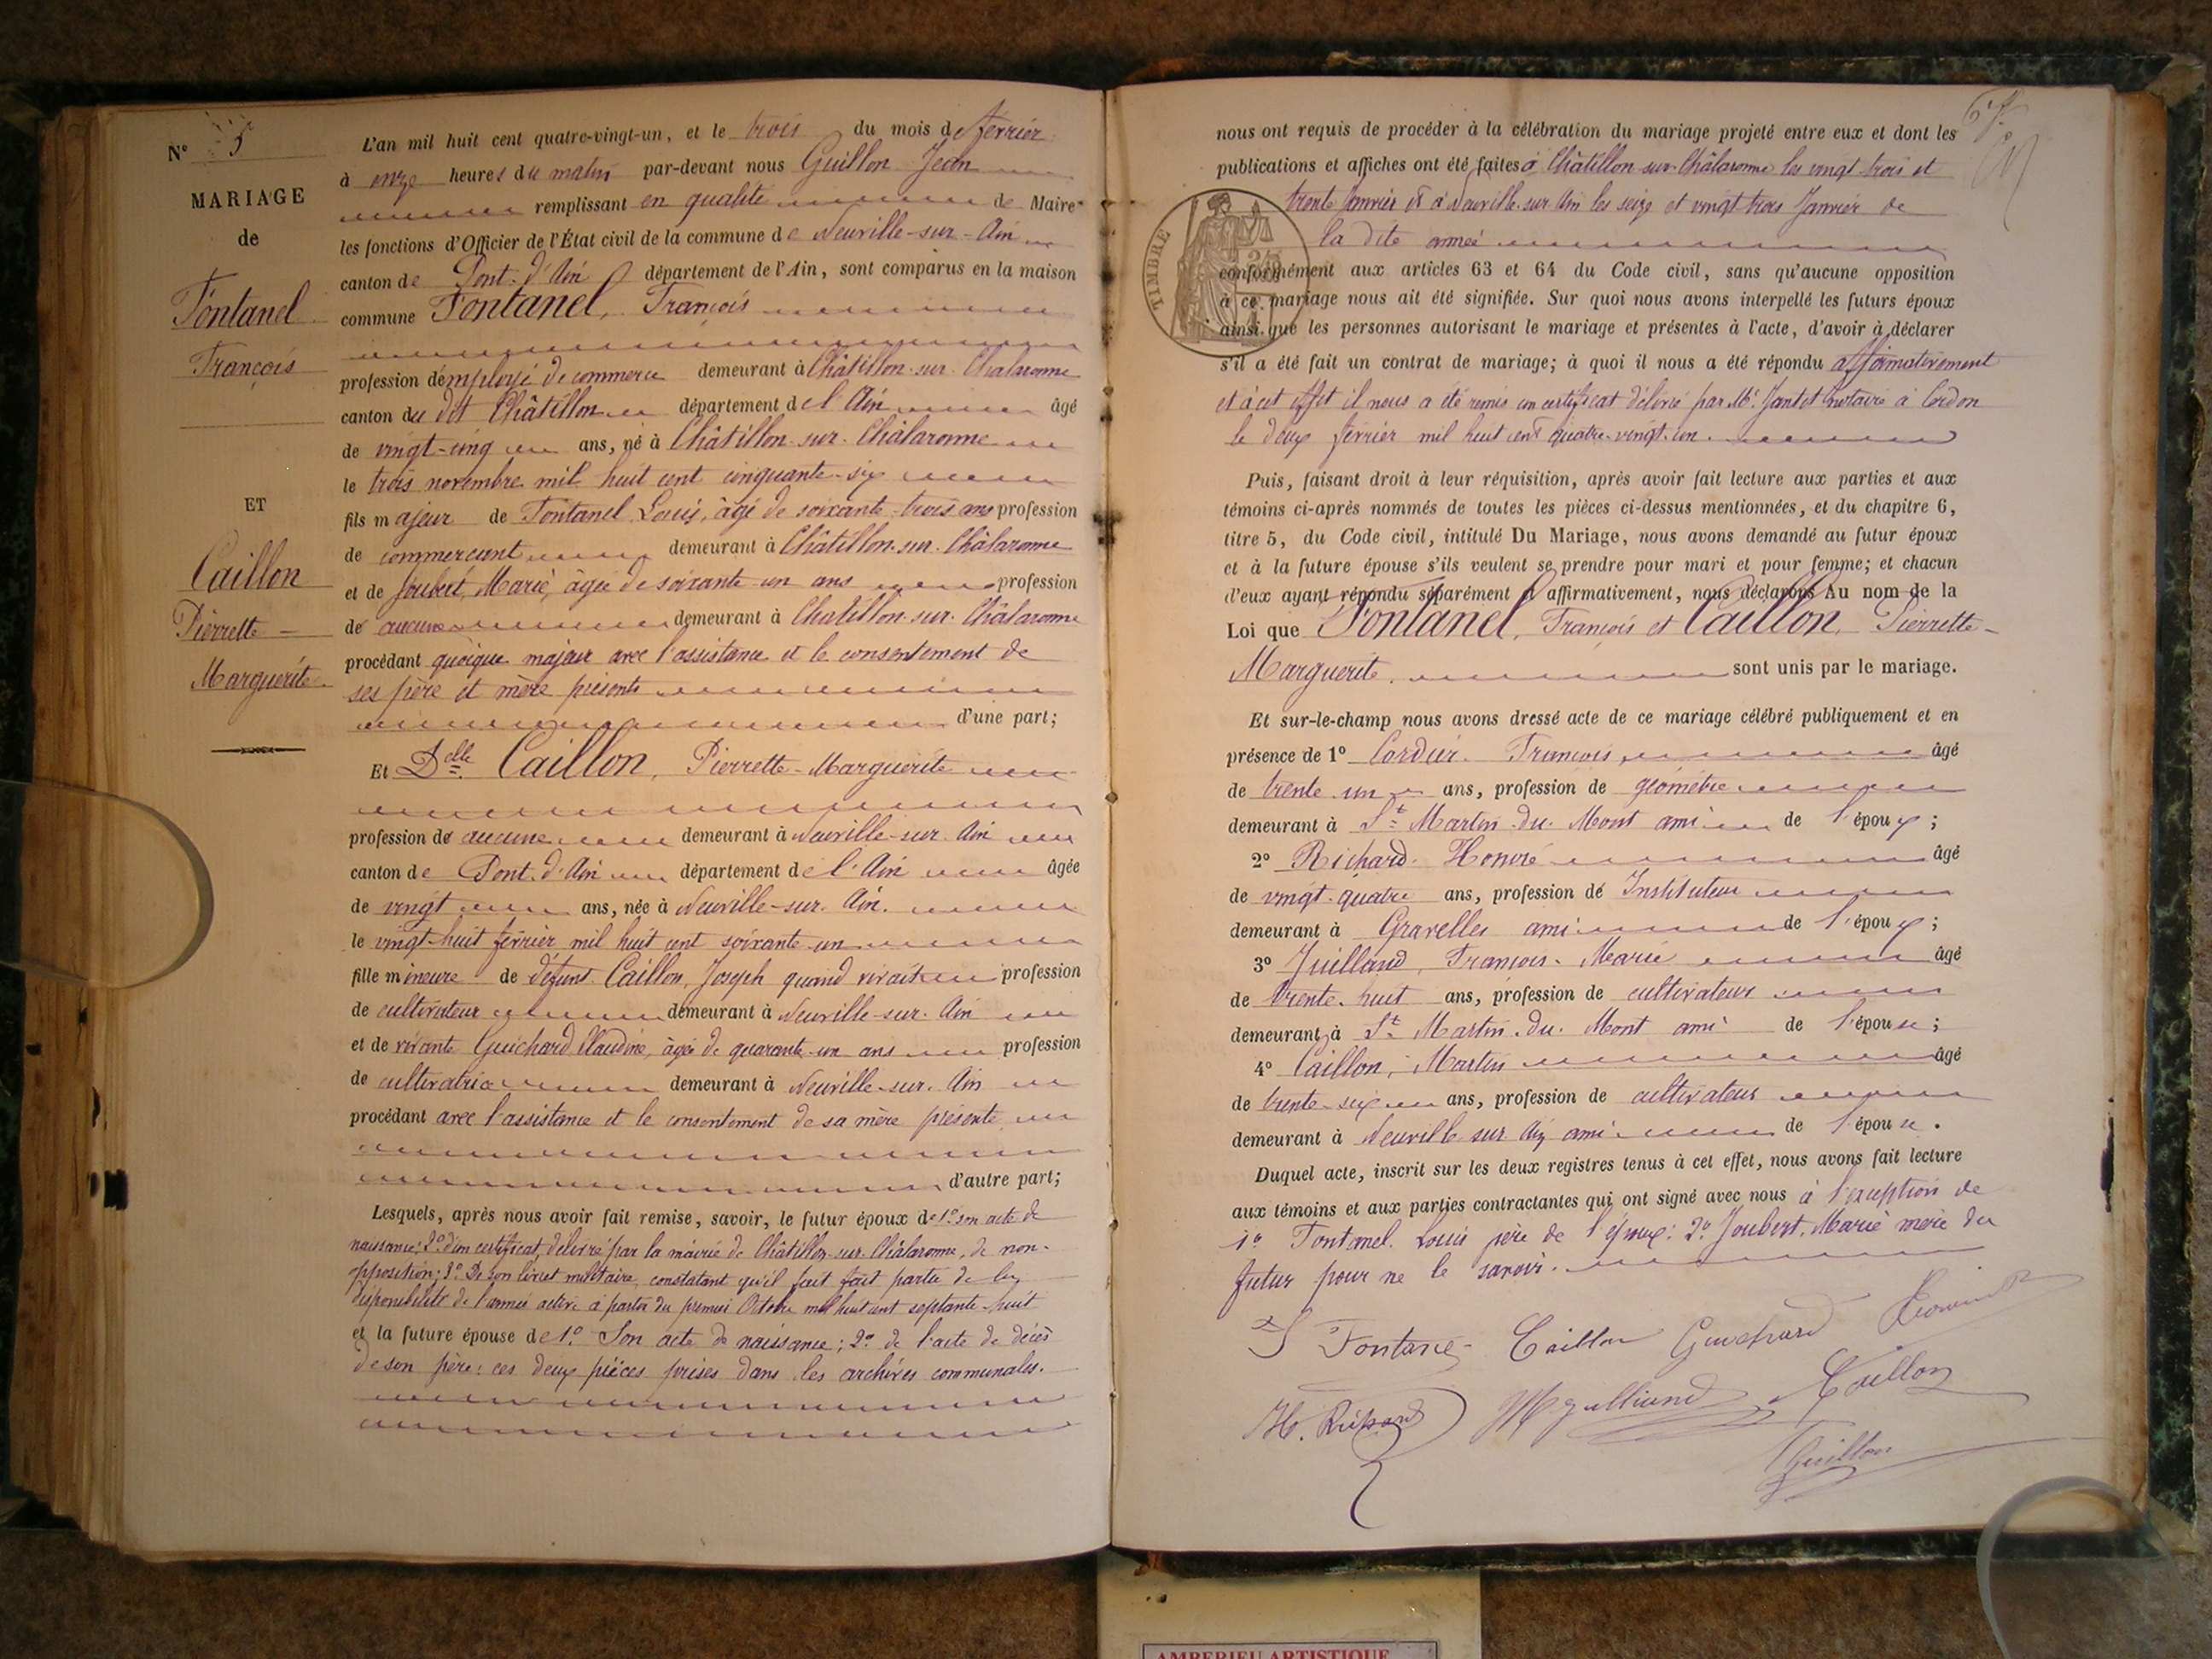 N° 5
MARIAGE
de
Fontanel
François
ET
Caillon
Pierrette
Marguerite
L'an mil huit cent quatre-vingt-un, et le trois du mois de février
à onze heures du matin par-devant nous Guillon Jean
remplissant en qualité de Maire
les fonctions d'Officier de l'État civil de la commune de Neuville-sur-Ain
canton de Pont-d'Ain département de l'Ain, sont comparus en la maison
commune Fontanel, François
profession d'employé de commerce demeurant à Châtillon-sur-Chalaronne
canton du dit Châtillon département de l'Ain âgé
de vingt-cinq ans, né à Châtillon-sur-Châlaronne
le trois novembre mil huit cent cinquante-six
fils majeur de Fontanel Louis, âgé de soixante-trois ans profession
de commerçant demeurant à Châtillon-sur-Châlaronne
et de Joubert, Marie, âgée de soixante-un ans profession
de aucune demeurant à Chatillon-sur-Châlaronne
procédant quoique majeur avec l'assistance et le consentement de
ses père et mère présents
d'une part;
Et Delle Caillon, Pierrette-Marguerite
profession de aucune demeurant à Neuville-sur-Ain
canton de Pont-d'Ain département de l'Ain âgée
de vingt ans, née à Neuville-sur-Ain.
le vingt-huit février mil huit cent soixante-un
fille mineure de défunt Caillon, Joseph quand vivait profession
de cultivateur demeurant à Neuville-sur-Ain
et de vivante Guichard Claudine, âgée de quarante-un ans profession
de cultivatrice demeurant à Neuville-sur-Ain
procédant avec l'assistance et le consentement de sa mère présente
d'autre part;
Lesquels, après nous avoir fait remise, savoir, le futur époux de 1° son acte de
naissance; 2° d'un certificat, délivré par la mairie de Châtillon-sur-Châlaronne, de non-
opposition; 3° De son livret militaire, constatant qu'il fait partie de la
disponibilité de l'armée active à partir du premier Octobre mil huit cent septante-huit
et la future épouse de 1° Son acte de naissance; 2° de l'acte de décès
de son père: ces deux pièces prises dans les archives communales.
nous ont requis de procéder à la célébration du mariage projeté entre eux et dont les
publications et affiches ont été faites à Châtillon-sur-Châlaronne les vingt-trois et
trente Janvier et à Neuville-sur-Ain les seize et vingt trois Janvier de
la dite année
TIMBRE
conformément aux articles 63 et 64 du Code civil, sans qu'aucune opposition
à ce mariage nous ait été signifiée. Sur quoi nous avons interpellé les futurs époux
ainsi que les personnes autorisant le mariage et présentes à l'acte, d'avoir à déclarer
s'il a été fait un contrat de mariage; à quoi il nous a été répondu affirmativement
et à cet effet il nous a été remis un certificat délivré par Me Jantet notaire à Cerdon
le deux février mil huit cent quatre-vingt-un.
Puis, faisant droit à leur réquisition, après avoir fait lecture aux parties et aux
témoins ci-après nommés de toutes les pièces ci-dessus mentionnées, et du chapitre 6,
titre 5, du Code civil, intitulé Du Mariage, nous avons demandé au futur époux
et à la future épouse s'ils veulent se prendre pour mari et pour femme; et chacun
d'eux ayant répondu séparément & affirmativement, nous déclarons Au nom de la
Loi que Fontanel, François et Caillon, Pierrette-
Marguerite. sont unis par le mariage.
Et sur-le-champ nous avons dressé acte de ce mariage célébré publiquement et en
présence de 1° Cordier François, âgé
de trente-un ans, profession de géomètre
demeurant à St Martin-du-Mont ami de l'époux;
2° Richard Honoré âgé
de vingt-quatre ans, profession de Instituteur
demeurant à Gravelles ami de l'époux;
3° Juilland, François-Marie âgé
de trente-huit ans, profession de cultivateur
demeurant à St Martin-du-Mont ami de l'épouse;
4° Caillon, Martin âgé
de trente-six ans, profession de cultivateur
demeurant à Neuville sur Ain ami de l'épouse.
Duquel acte, inscrit sur les deux registres tenus à cet effet, nous avons fait lecture
aux témoins et aux parties contractantes qui ont signé avec nous à l'exception de
1° Fontanel Louis père de l'époux: 2° Joubert, Marie mère du
futur pour ne le savoir.
Fontanel Caillon Guichard
H. Richard Caillon
Guillon
AMBERIEU ARTISTIQUE